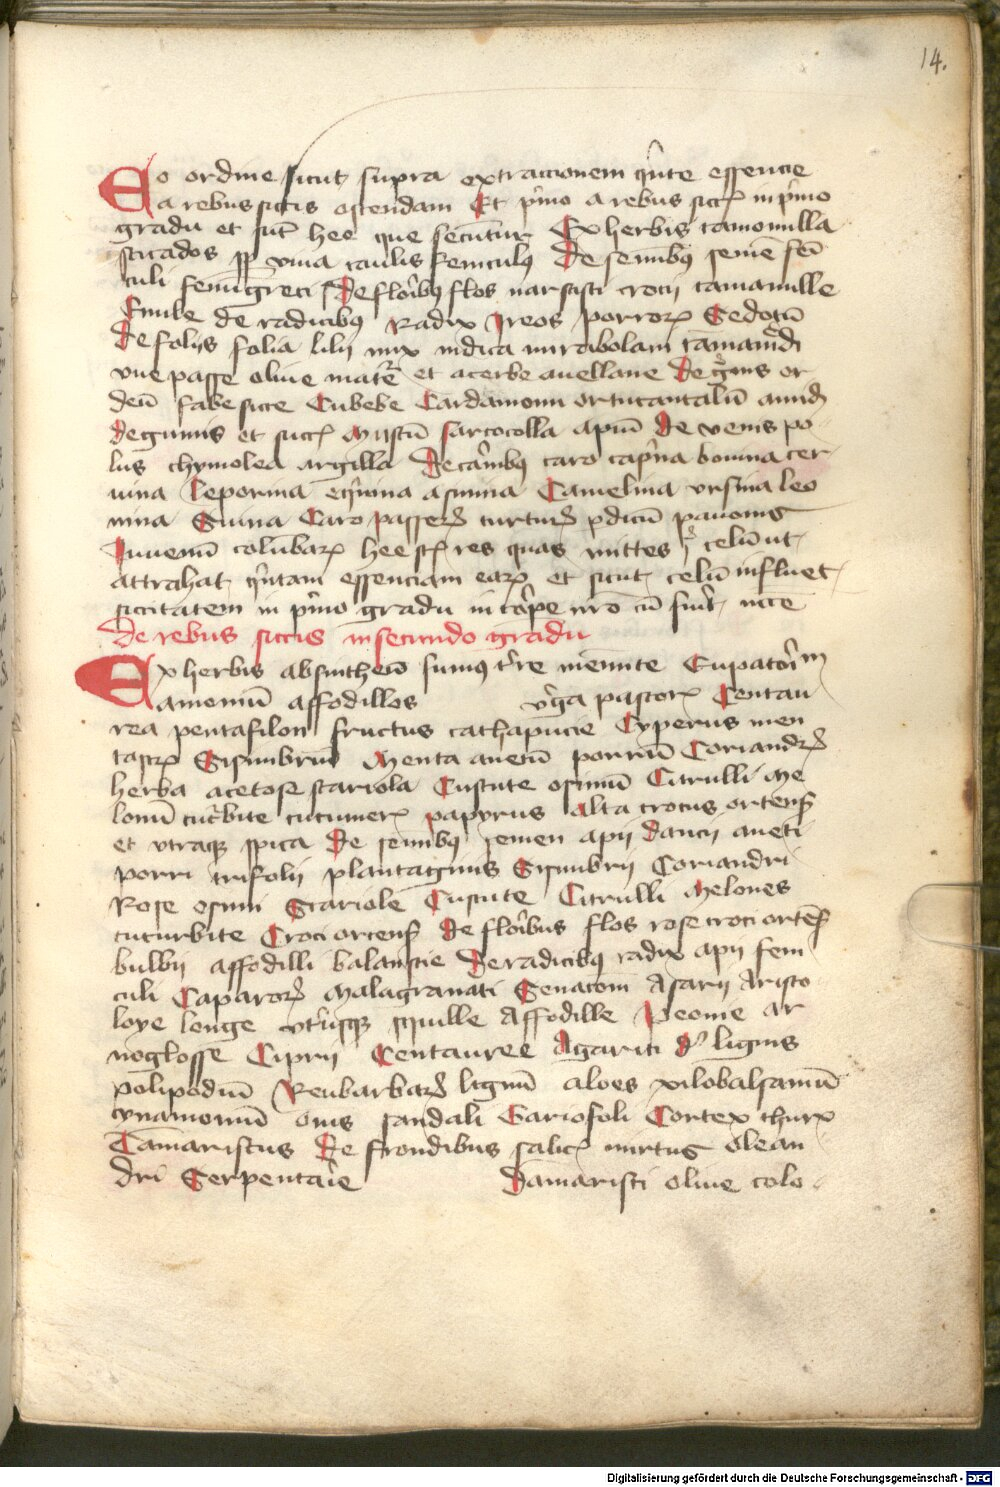 14.
Eo ordine sicut supra extraccionem qinte essencie
a rebus siccis ostendam Et pimo a rebus sicc in pimo
gradu et sūt hee que secūtur Ex herbis camomilla
sticados vina caulis feniculus De seminibus semē fēi
culi fenugreci De floribus flos narsisci crocii camamille
Emule de radicibus Radix Ireos porrorum Cedoriū
De foliis folia lilii nux indica mirabolani tamarīdi
vue passe oliue matre et acerbe auellane De gnis or
deū fabe sicce Cubebe Cardamomi
De gumis et succ Mustū sarcocolla apiū De venis po
lus chymolea argilla De carnibus caro caprina bouina cer
uina Leporina equina asinina Camelina vrsina leo
nina Suina Caro passerum turturum pdicū pauonis
Iuuenū columbarum hee st res quas mittes celū ut
attrahat qintam essenciam earum et sicut celū influet
siccitatem in pimo gradu in corpe nro cū fuit nccē
De rebus siccis in secundo gradu
Ex herbis absintheū fumus terre memite Eupatorium
amomū affodillos virga pastorum Centau
rea pentafilon fructus cathapucie Cyperus men
tastrum Sisimbriū Menta anetū porrū Coriandrum
herba acetose scariola Cuscute osimū Citrulli me
lonū cucurbite cucumerum papyrus Alta crocus ortens
et vtraque spica De seminibus semen apii daucii aneti
porri trifolii plantaginis Sisimbrii Coriandri
Rose osimi Scariole Cuscute Citrulli Melones
cucurbite Croci ortens De floribus flos rose croci ortēs
bulbii affodilli balaustie De radicibus radix apii feni
culi Capparorum Malagranati Senacioni Asarii Aristo
loye longe vtriusque squille Affodille Peonie Ar
noglosse Ciprii Centauree Agarici De lignis
polipodiū Reubarbarum lignū aloes xilobalsamū
cynamomū onis sandali Gariofoli Cortex thurum
Tamariscus De frondibus salicum mirtus Olean
dri Serpentarie Damarisci oliue colo
Digitalisierung gefördert durch die Deutsche Forschungsgemeinschaft - DFG